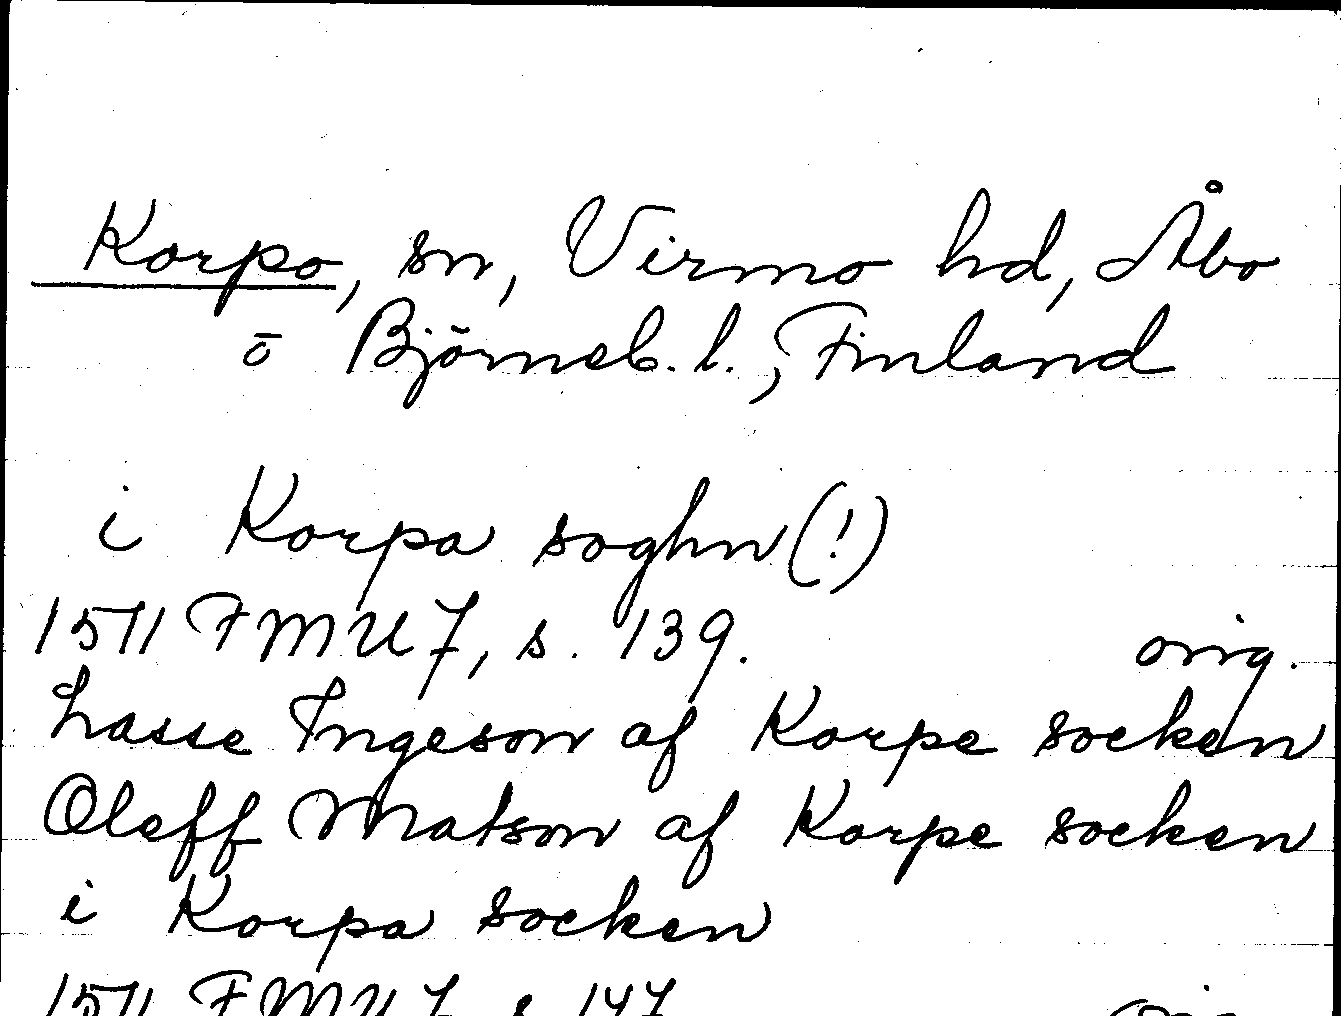 Korpo, sn, Virmo hd, Åbo
o Björneb. l., Finland
i Korpa soghn (!)
1511 FMU 7, s. 139. orig.
Lasse Ingeson af Korpe socken
Oleff Matson af Korpe socken
i Korpa socken
1511 FMU 7, s. 147